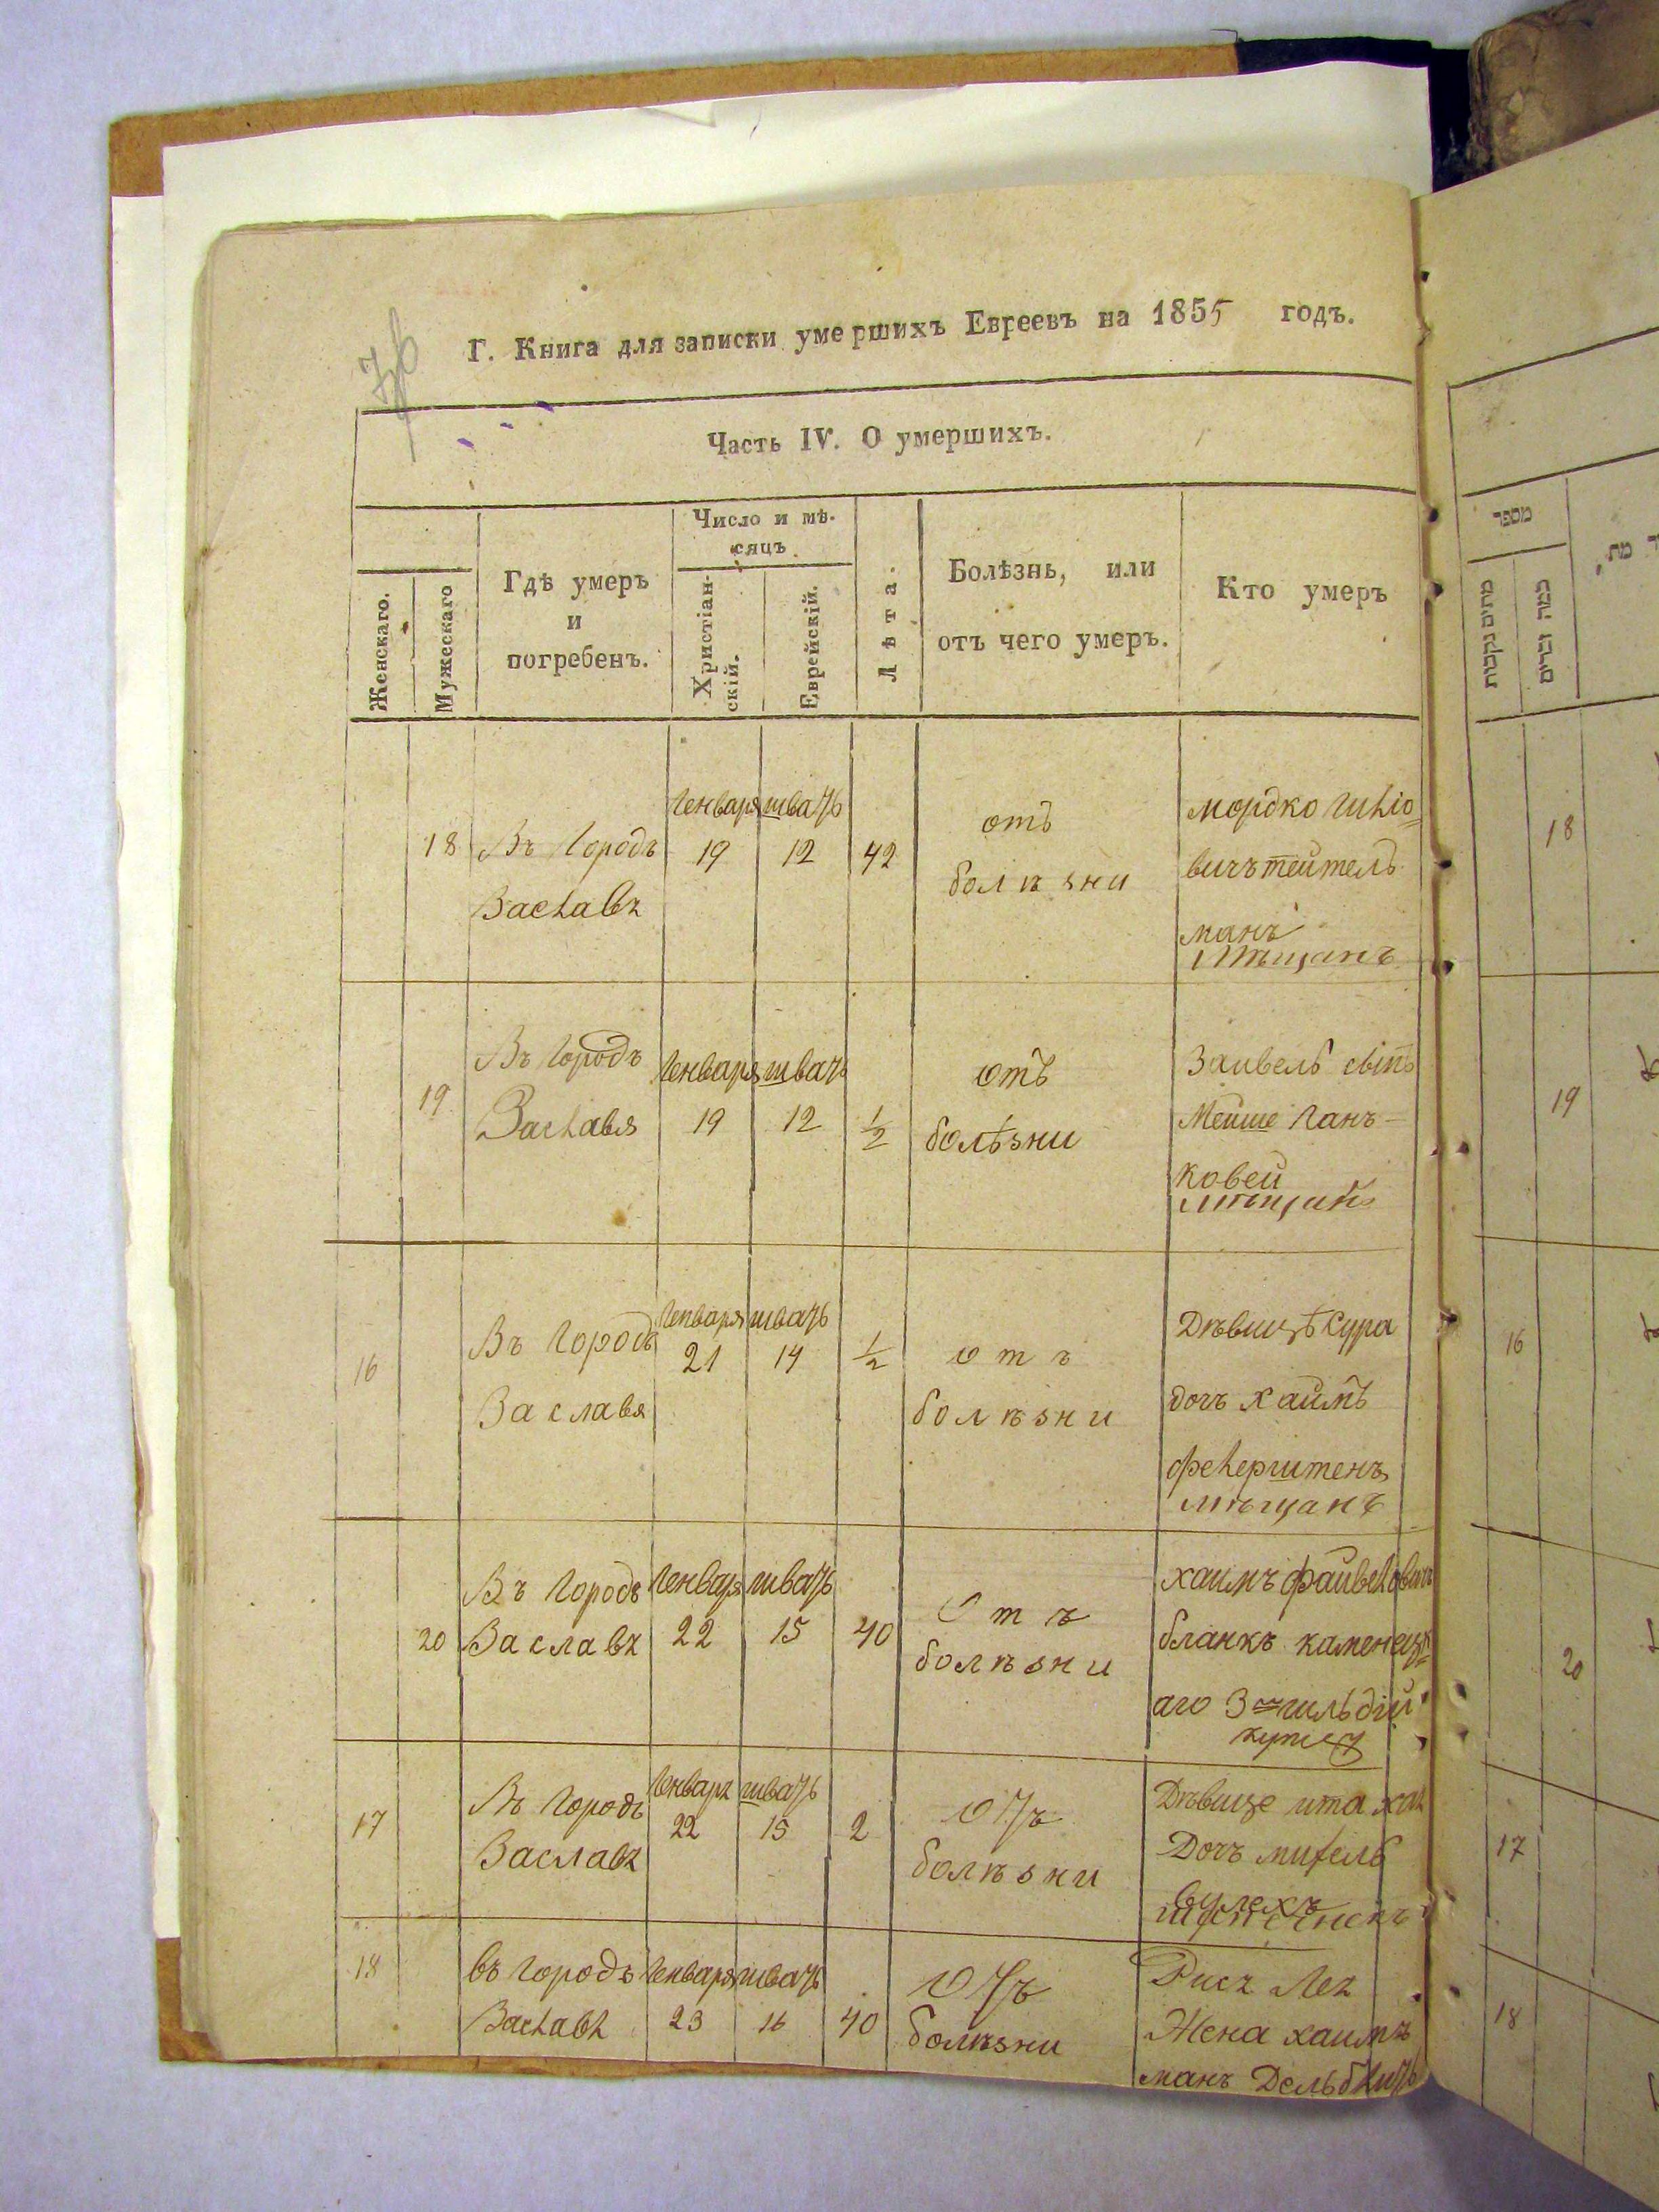 Г. Книга для записки умершихъ Евреевъ на 1855 годъ.
Часть IV. О умершихъ.
Женскаго.
Мужескаго
Гдѣ умеръ
и
погребенъ.
Число и мѣ-
сяцъ.
Христіан-
скій.
Еврейскій.
Лѣта.
Болѣзнь, или
отъ чего умеръ.
Кто умеръ
18
Въ Городѣ
Заславя
Генваря
19
шватъ
12
42
отъ
болѣзни
мордко
вичъ тейтель
манъ
мѣщанъ
19
Въ Городѣ
Заславя
Генваря
19
шватъ
12
1/2
отъ
болѣзни
Заивель сынъ
Мейше Ганъ-
ковей
мѣщанъ
16
Въ Городѣ
Заславя
Генваря
21
шватъ
14
1/2
отъ
болѣзни
Дѣвицѣ Сура
дочъ хаимъ
фекерштенъ
мѣщанъ
20
Въ Городѣ
Заславя
Генваря
22
шватъ
15
40
Отъ
болѣзни
хаимъ файвеловичъ
бланкъ каменецк=
аго 3 гильдій
купец
17
Въ Городѣ
Заславя
Генваря
22
шватъ
15
2
отъ
болѣзни
Дѣвице ита хая
Дочъ
18
въ Городѣ
Заславя
Генваря
23
шватъ
16
40
отъ
болѣзни
Рися Лея
Жена хаимъ
манъ
מספר
מתים נקבות
כמה זכרים
18
19
16
20
17
18